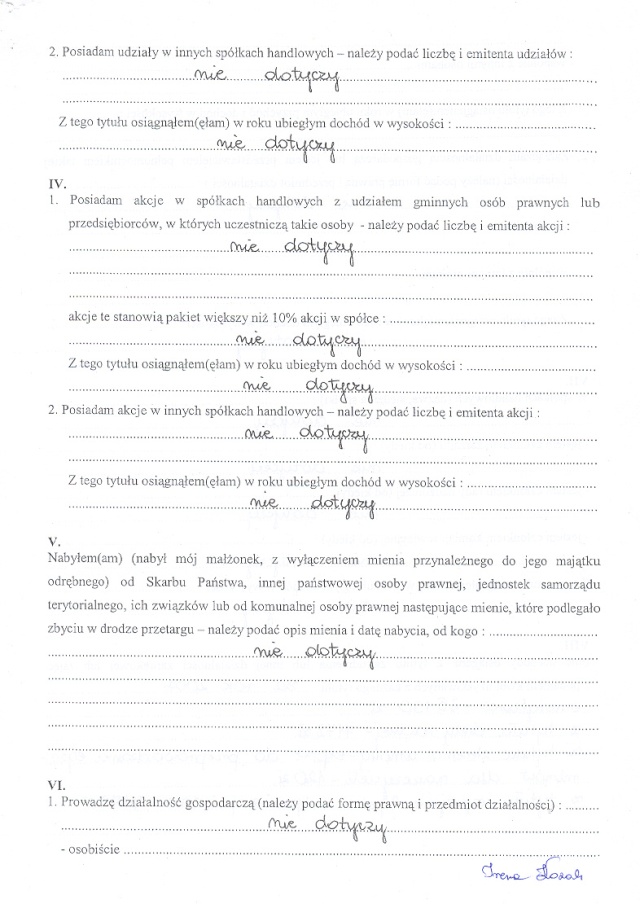 2. Posiadam udziały w innych spółkach handlowych – należy podać liczbę i emitenta udziałów :
nie dotyczy
Z tego tytułu osiągnąłem(ęłam) w roku ubiegłym dochód w wysokości :
nie dotyczy
IV.
1. Posiadam akcje w spółkach handlowych z udziałem gminnych osób prawnych lub
przedsiębiorców, w których uczestniczą takie osoby - należy podać liczbę i emitenta akcji :
nie dotyczy
akcje te stanowią pakiet większy niż 10% akcji w spółce :
nie dotyczy
Z tego tytułu osiągnąłem(ęłam) w roku ubiegłym dochód w wysokości :
nie dotyczy
2. Posiadam akcje w innych spółkach handlowych – należy podać liczbę i emitenta akcji :
nie dotyczy
Z tego tytułu osiągnąłem(ęłam) w roku ubiegłym dochód w wysokości :
nie dotyczy
V.
Nabyłem(am) (nabył mój małżonek, z wyłączeniem mienia przynależnego do jego majątku
odrębnego) od Skarbu Państwa, innej państwowej osoby prawnej, jednostek samorządu
terytorialnego, ich związków lub od komunalnej osoby prawnej następujące mienie, które podlegało
zbyciu w drodze przetargu – należy podać opis mienia i datę nabycia, od kogo :
nie dotyczy
VI.
1. Prowadzę działalność gospodarczą (należy podać formę prawną i przedmiot działalności) :
nie dotyczy
- osobiście
Irena